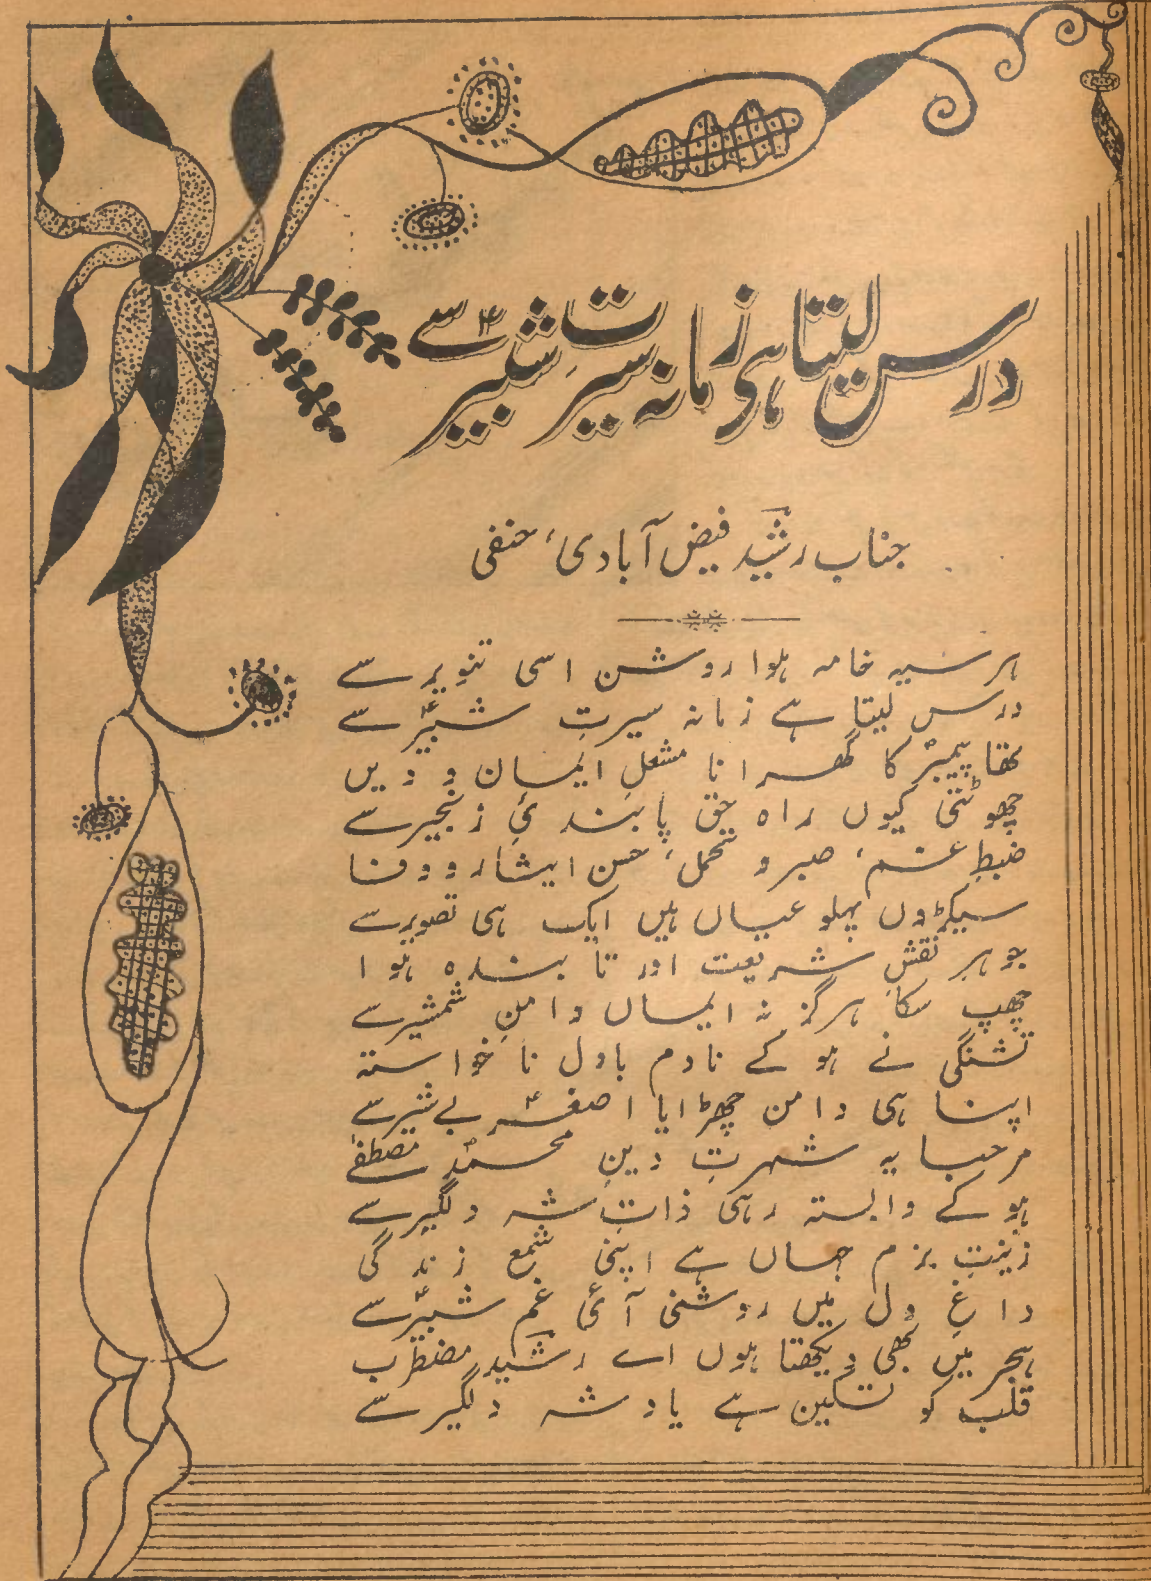 درس لیتا ہی زمانہ سیرتِ شبیرؑ سے
جناب رشید فیض آبادی، حنفی
ہر سیہ خامہ ہوا روشن اسی تنویر سے
درس لیتا ہے زمانہ سیرتِ شبیرؑ سے
تھا پیمبرؐ کا گھرانا مشعلِ ایمان و دیں
چھوٹتی کیوں راہ حق پابندیِ زنجیر سے
ضبطِ غم، صبر و تحمل، حسن ایثار و وفا
سیکڑوں پہلو عیاں ہیں ایک ہی تصویر سے
جوہر نقشِ شریعت اور تابندہ ہوا
چھپ سکا ہرگز نہ ایماں دامنِ شمشیر سے
تشنگی نے ہو کے نادم بادل ناخواستہ
اپنا ہی دامن چھڑایا اصغرؑ بے شیر سے
مرحبا یہ شہرتِ دینِ محمدؐ مصطفےٰ
ہو کے وابستہ رہی ذاتِ شہ دلگیر سے
زینتِ بزم جہاں ہے اپنی شمع زندگی
داغِ دل میں روشنی آئی غمِ شبیرؑ سے
ہجر میں بھی دیکھتا ہوں اے رشید مضطرب
قلب کو تسکین ہے یاد شہ دلگیر سے